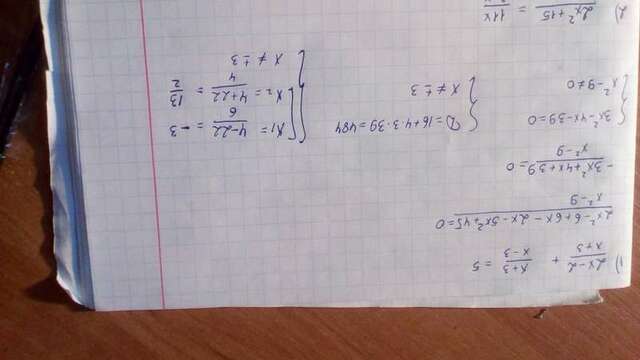 1) (2x-2)/(x+3) + (x+3)/(x-3) = 5
(2x²-6+6x-2x-5x²+45)/(x²-9) = 0
(-3x²+4x+39)/(x²-9) = 0
{ 3x²-4x-39=0
x²-9≠0
{ D=16+4·3·39=484
x ≠ ±3
x₁ = (4-22)/6 = -3
x₂ = (4+22)/4 = 13/2
x ≠ ±3
2) 2x²+15 = 11x